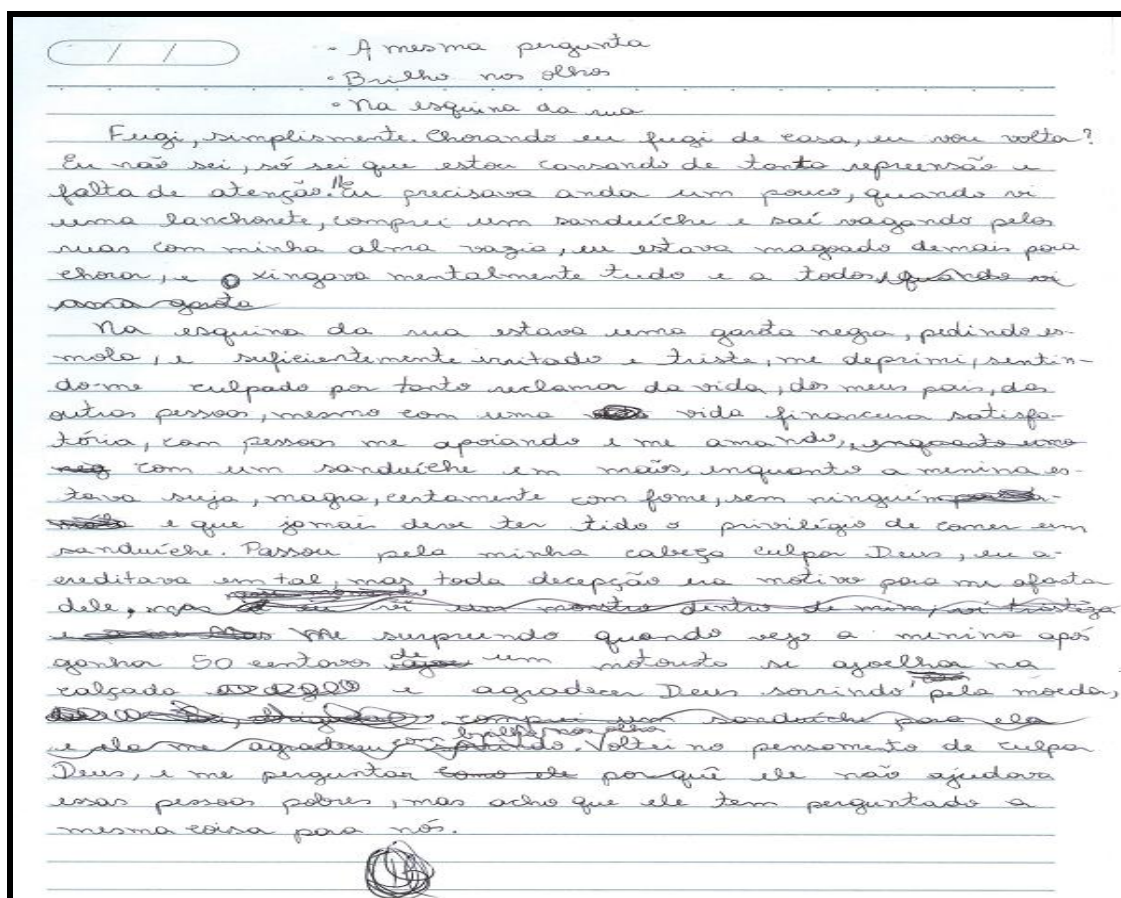 / /
· A mesma pergunta
· Brilho nos olhos
· Na esquina da rua
Fugi, simplismente. Chorando eu fugi de casa, eu vou volta?
Eu não sei, só sei que estou cansando de tanto repreensão e
falta de atenção. Eu precisava anda um pouco, quando vi
uma lanchonete, comprei um sanduíche e saí vagando pelas
ruas com minha alma vazia, eu estava magoado demais para
chorar, e xingava mentalmente tudo e a todos, quando vi
uma garota
Na esquina da rua estava uma garota negra, pedindo es-
mola, e suficientemente irritado e triste, me deprimi, sentin-
do-me culpado por tanto reclamar da vida, dos meus pais, das
outras pessoas, mesmo com uma vida financeira satisfa-
tória, com pessoas me apoiando e me amando, enquanto uma
neg com um sanduíche em mãos, inquanto a menina es-
tava suja, magra, certamente com fome, sem ninguém
e que jamais deve ter tido o privilégio de comer um
sanduíche. Passou pela minha cabeça culpar Deus, eu a-
creditava em tal, mas toda decepção era motivo para me afasta
dele, e eu vi um monstro dentro de mim, vi tristeza
e me surpreendo quando vejo a menina após
ganhar 50 centavos de um motorista se ajoelhar na
calçada e agradecer Deus sorrindo pela moeda,
comprei um sanduíche para ela
e ela me agradeceu com brilho nos olhos sorrindo. Voltei no pensamento de culpar
Deus, e me perguntar como ele por quê ele não ajudava
essas pessoas pobres, mas acho que ele tem perguntado a
mesma coisa para nós.